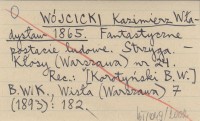 WÓJCICKI Kazimierz Wła-
dysław 1865. Fantastyczne
postacie ludowe. Strzyga. –
Kłosy (Warszawa) nr 24.
Rec.: [Korotyński B.W.]
B.W.K., Wisła (Warszawa) 7
(1893): 182.